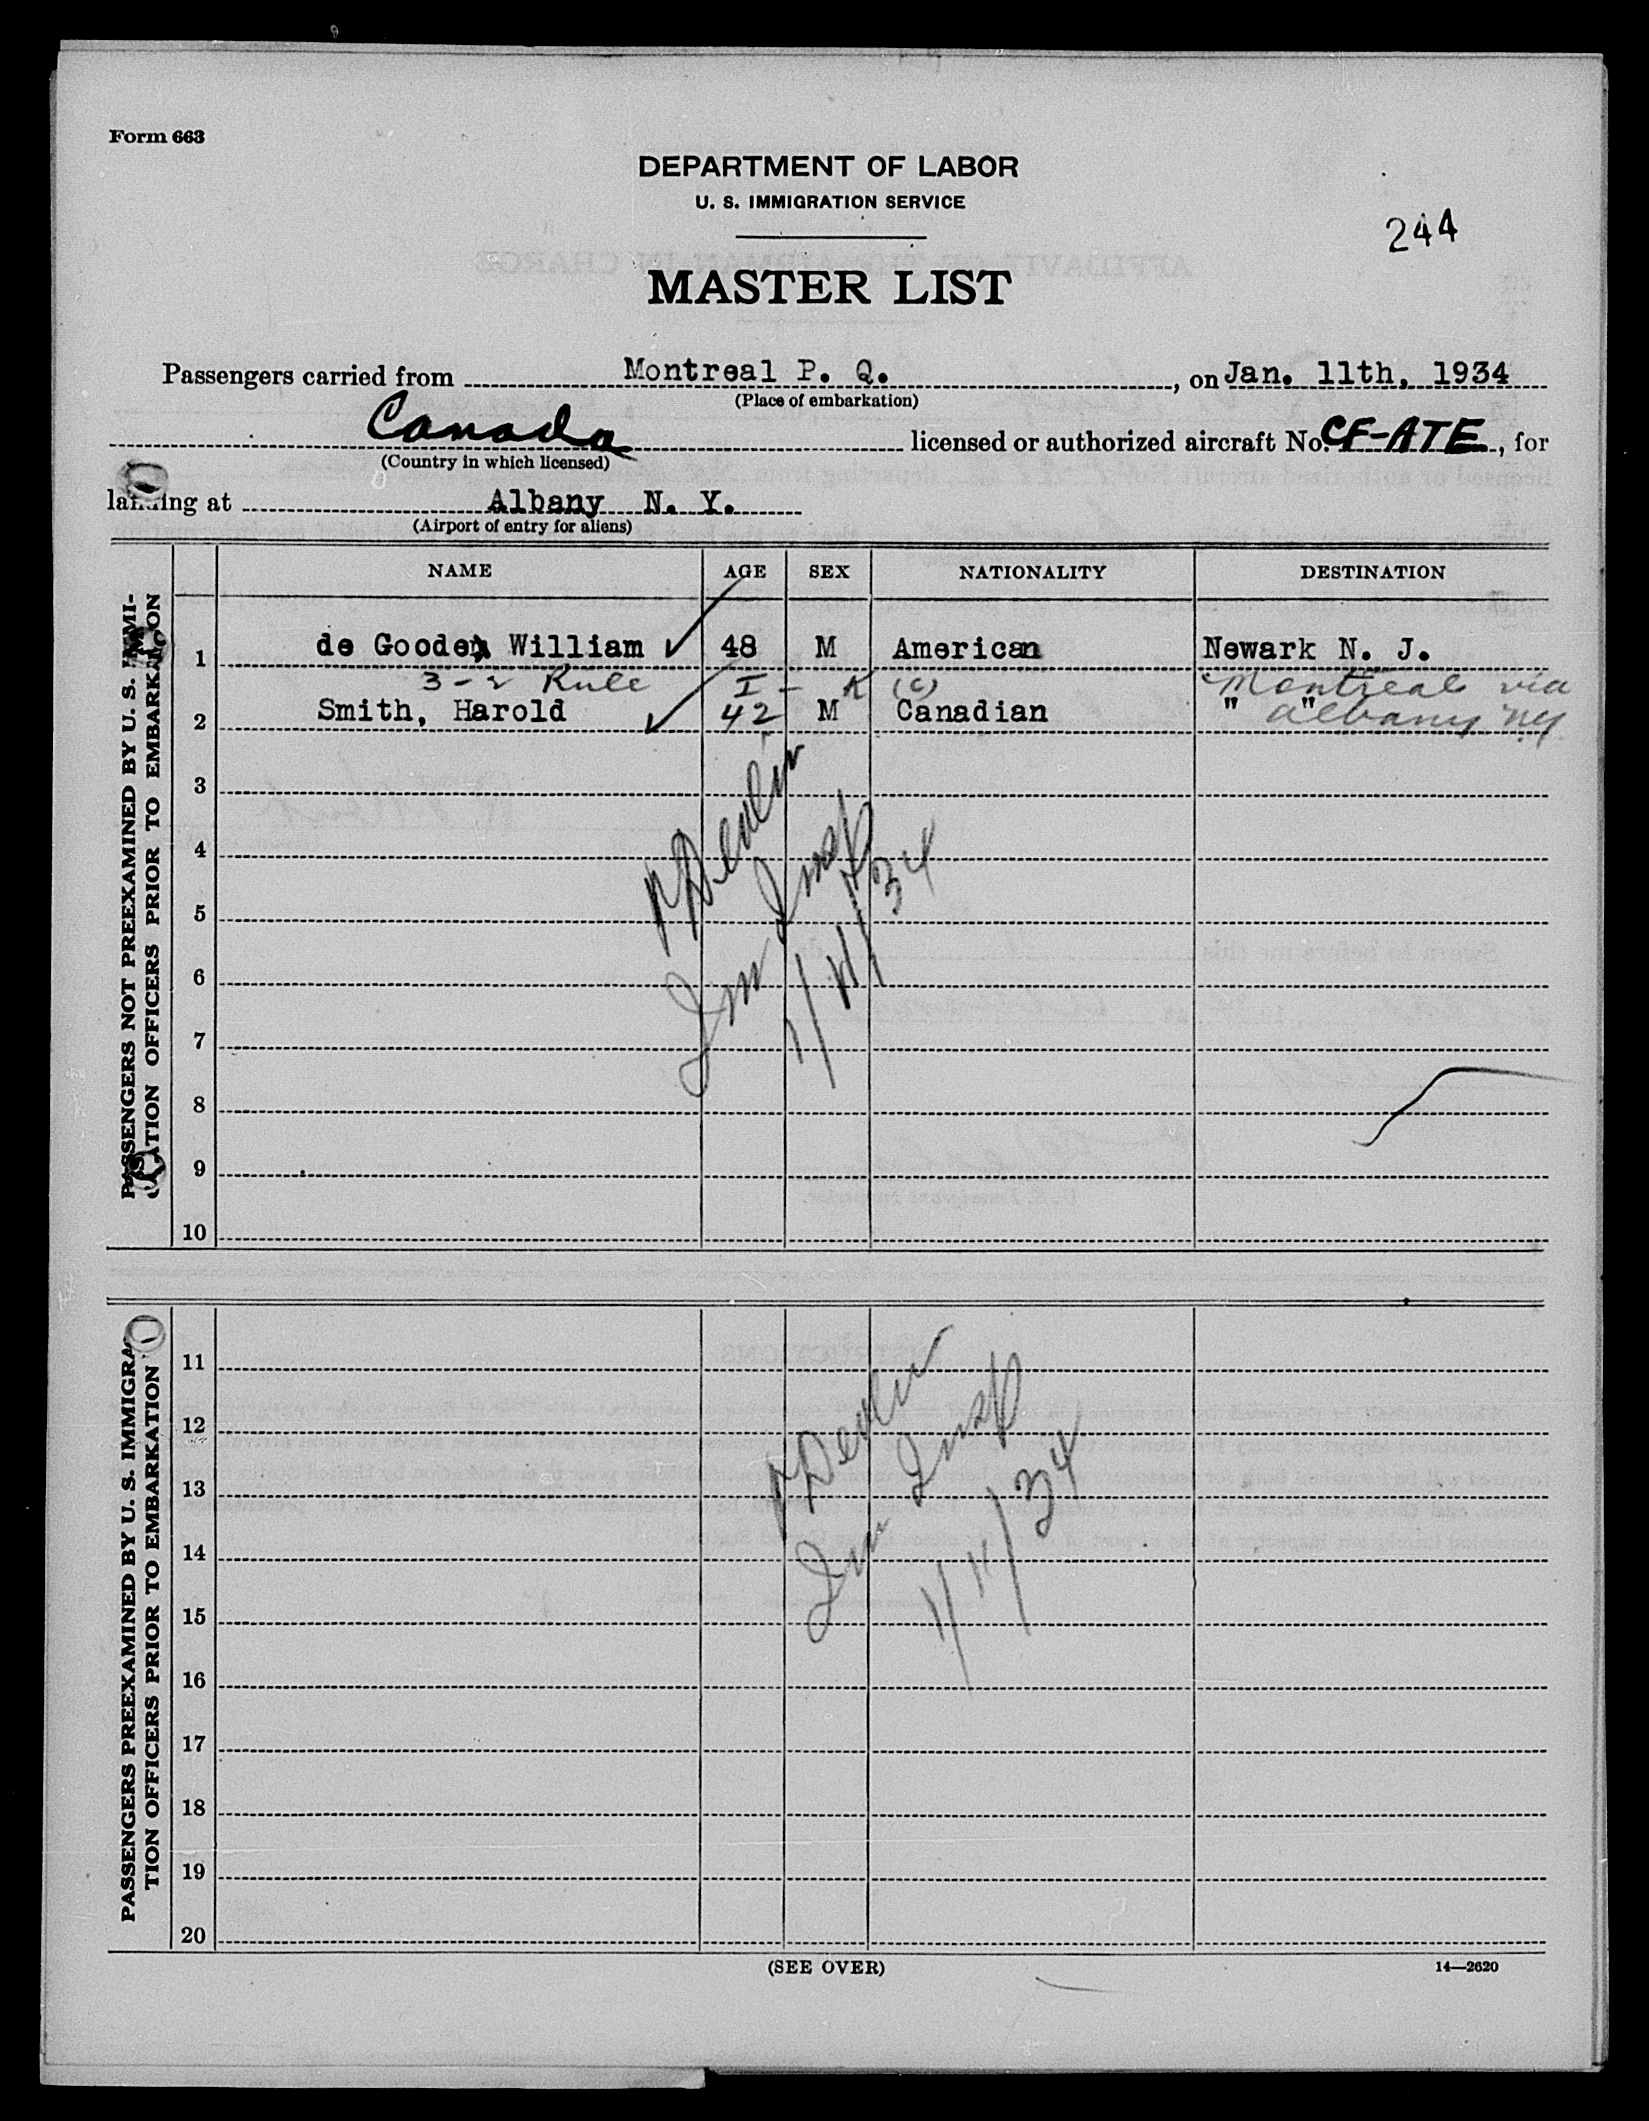 Form 663
DEPARTMENT OF LABOR
U. S. IMMIGRATION SERVICE
244
MASTER LIST
Passengers carried from Montreal P. Q., on Jan. 11th, 1934
(Place of embarkation)
Canada licensed or authorized aircraft No. CF-ATE, for
(Country in which licensed)
landing at Albany N. Y.
(Airport of entry for aliens)
NAME AGE SEX NATIONALITY DESTINATION
PASSENGERS NOT PREEXAMINED BY U. S. IMMI-
GRATION OFFICERS PRIOR TO EMBARKATION
1 de Goode William 48 M American Newark N. J.
3-2 Rule I - K (C) Montreal via
2 Smith, Harold 42 M Canadian " " Albany NY
3
4
5
6
7
8
9
10
Devlin
Im Insp
1/11/34
PASSENGERS PREEXAMINED BY U. S. IMMIGRA-
TION OFFICERS PRIOR TO EMBARKATION
11
12
13
14
15
16
17
18
19
20
Devlin
Im Insp
1/11/34
(SEE OVER)
14—2620